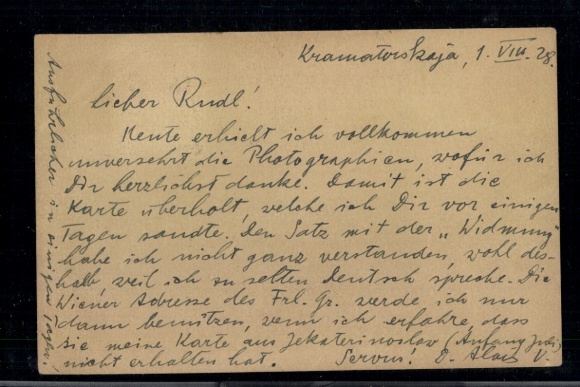 Kramatorskaja, 1. VIII. 28.
Lieber Rudl!
Heute erhielt ich vollkommen
unversehrt die Photographien, wofür ich
Dir herzlichst danke. Damit ist die
Karte überholt, welche ich Dir vor einigen
Tagen sandte. Den Satz mit der „Widmung"
habe ich nicht ganz verstanden, wohl des-
halb, weil ich zu selten Deutsch spreche. Die
Wiener Adresse des Frl. Gr. werde ich nur
dann benützen, wenn ich erfahre, dass
sie meine Karte aus Jekaterinoslav (Anfang Juli)
nicht erhalten hat. Servus! D. V.
Ausführlicher in einigen Tagen!